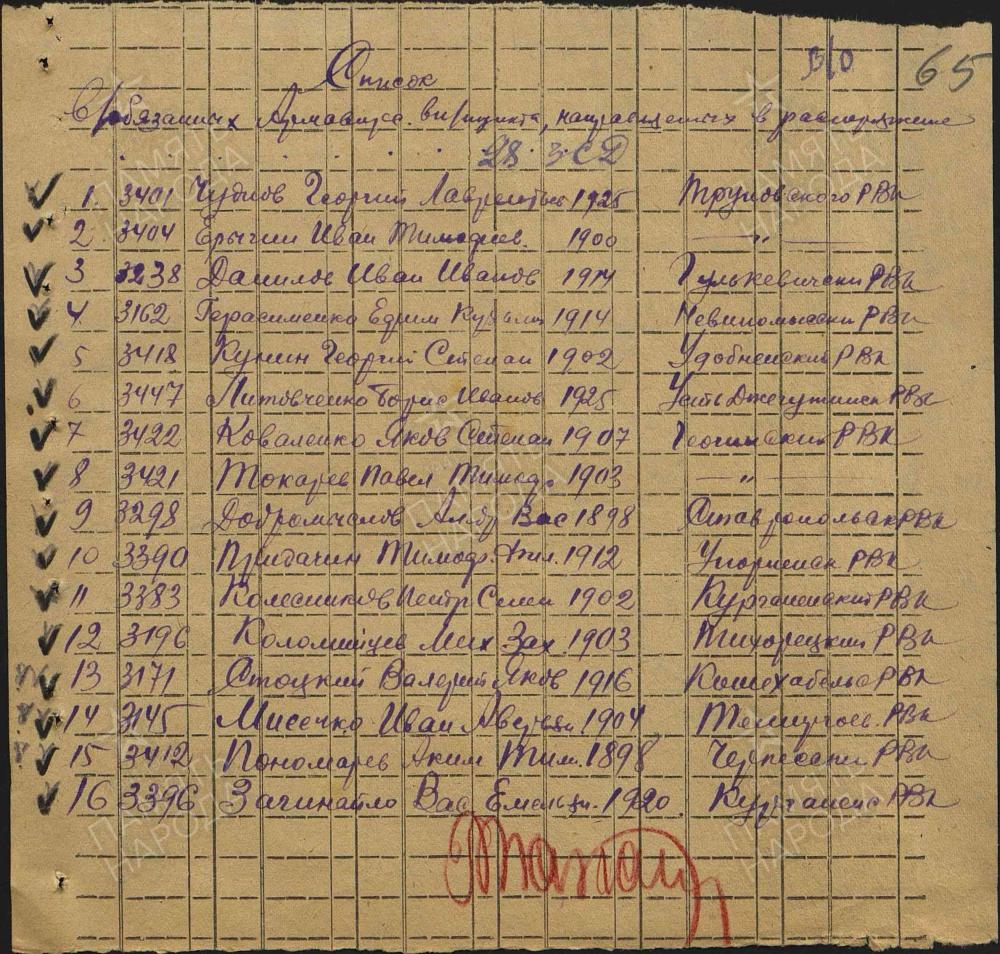 в/о 65
Список
В/обязанных Армавирск. в/пункта, направляемых в распоряжение
28 ЗСД
1. 3401 Чуднов Георгий Лаврентьев 1925 Труновского РВК
2 3404 Ерыгин Иван Тимофеев. 1900 — " —
3 3238 Данилов Иван Иванов 1914 Гулькевичски РВК
4 3162 Герасименко Ефим Кузьмич 1914 Невиномысски РВК
5 3418 Кунин Георгий Степан 1902 Удобненский РВК
6 3447 Литовченко Борис Иванов 1925 Усть Джегутинск РВК
7 3422 Коваленко Яков Степан 1907 РВК
8 3421 Токарев Павел Тимоф. 1903 — " —
9 3298 Добромыслов Ал-др Вас 1898 Ставропольск РВК
10 3390 Придачин Тимоф. Фил. 1912 Упорненск РВК
11 3383 Колесников Петр Семен 1902 Курганенский РВК
12 3196 Коломийцев Мих Зах. 1903 Тихорецкий РВК
13 3171 Стоцкий Валерий Яков 1916 Кошехабльс РВК
14 3145 Мисечко Иван 1904 РВК
15 3412 Пономарев Аким Тим. 1898 Черкесски РВК
16 3396 Зачинайло Вас. Емельян. 1920. Курганенс РВК
ПАМЯТЬ НАРОДА